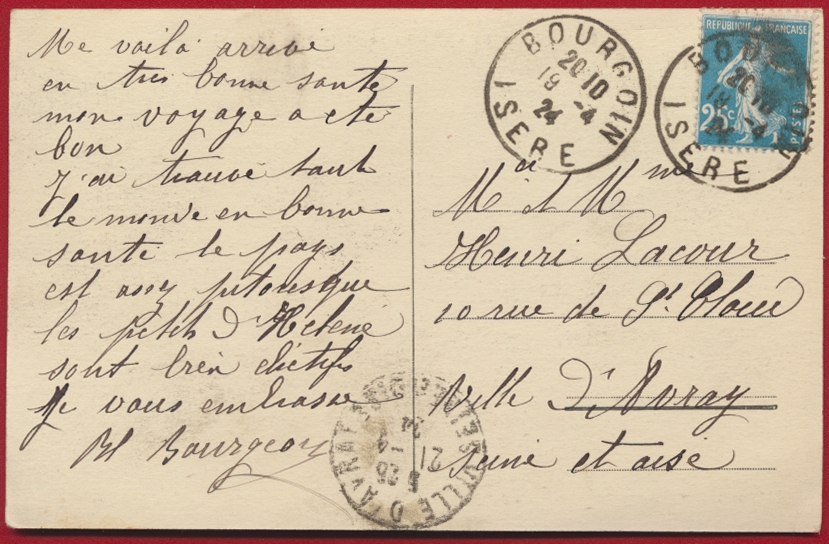 Me voilà arrivé
en tres bonne santé
mon voyage a ete
bon
J'ai trouvé tout
le monde en bonne
santé le pays
est assez pitoresque
les petits d'Helene
sont bien
Je vous embrasse
Bourgeon
BOURGOIN
20 10
19 -4
24
ISERE
REPUBLIQUE FRANÇAISE
25c
POSTES
BOURGOIN
20 10
19 -4
24
ISERE
Mr et Mme
Henri Lacour
10 rue de St Cloud
Ville d'Avray
Seine et oise
VILLE D'AVRAY
21
24